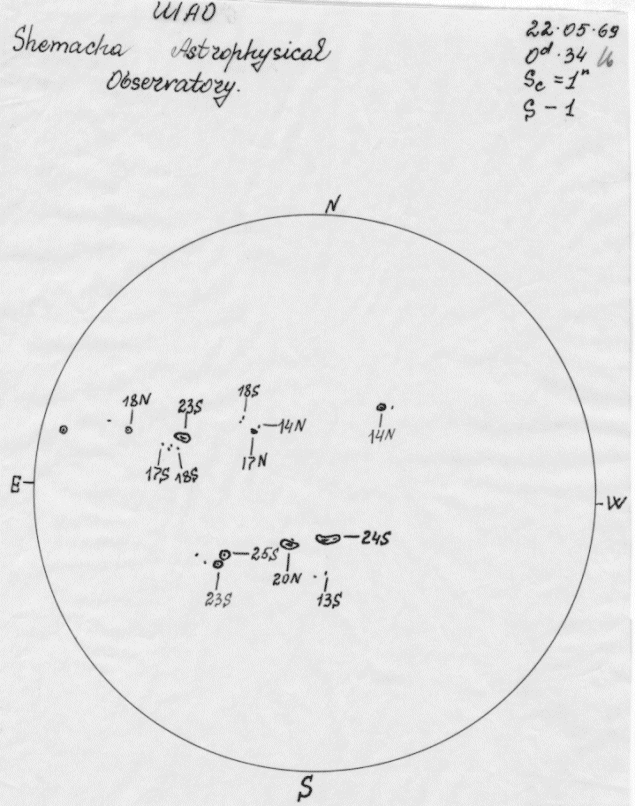 ШАО
Shemacha Astrophysical
Observatory.
22.05.69
0d.34
Sc = 1"
S - 1
N
18N
23S
18S
14N
14N
17N
17S
18S
E
W
24S
25S
20N
23S
13S
S